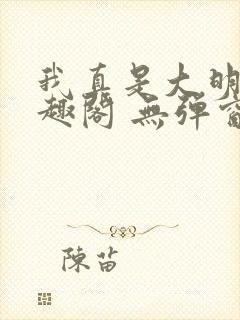 我真是大明
趣閣 無彈窗
陳苗